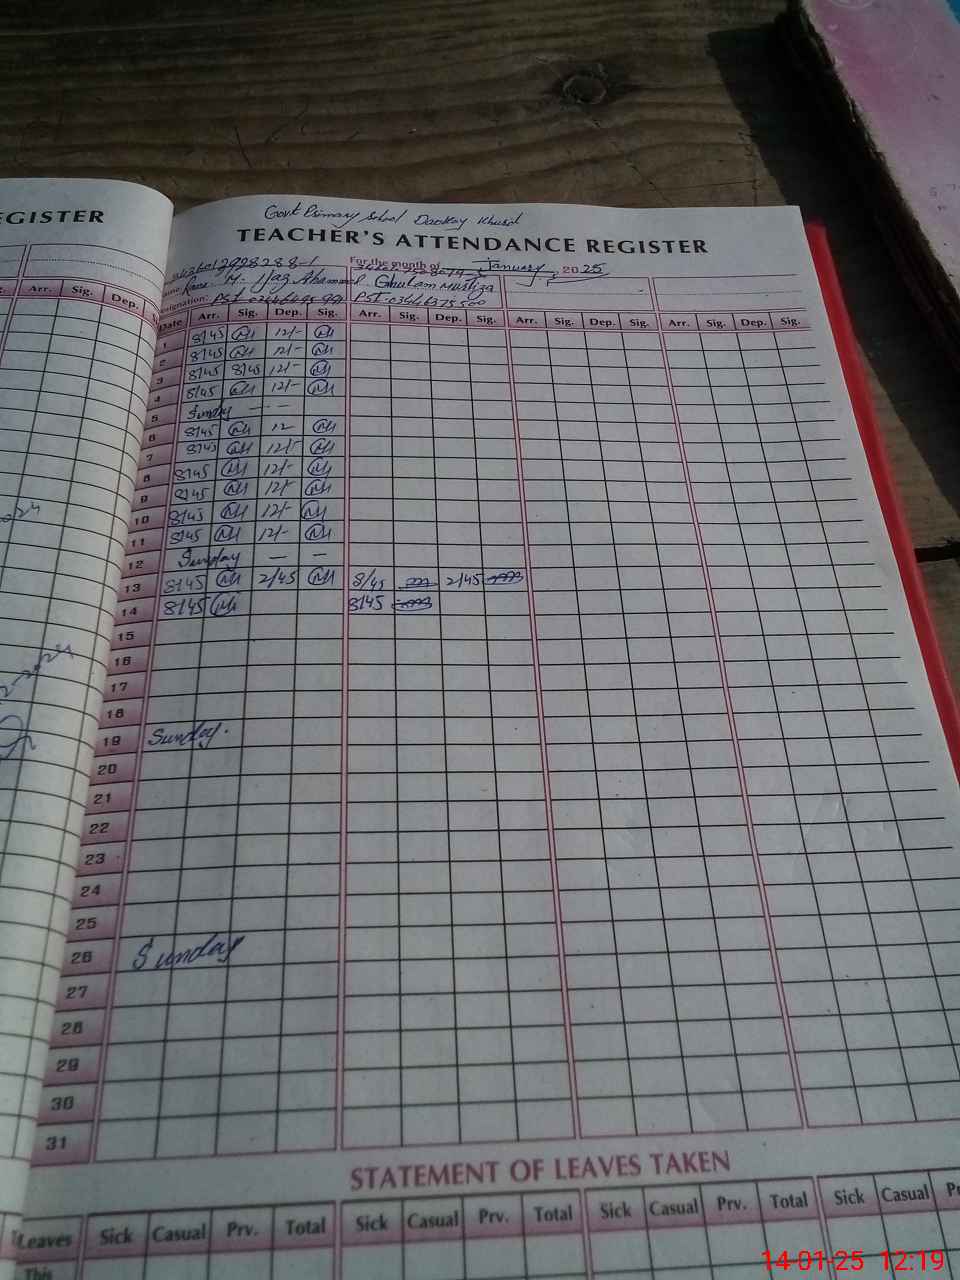 EGISTER
Govt Primary School
TEACHER'S ATTENDANCE REGISTER
For the month of January 2025
Rana M. Ijaz Ahammed Ghulam Murtiza
esignation: PST PST
Arr. Sig. Dep.
Date Arr. Sig. Dep. Sig. Arr. Sig. Dep. Sig. Arr. Sig. Dep. Sig. Arr. Sig. Dep. Sig.
1 8/45 12/-
2 8/45 12/-
3 8/45 8/45 12/-
4 8/45 12/-
5 Sunday — —
6 8/45 12
7 8/45 12/-
8 8/45 12/-
9 8/45 12/-
10 8/45 12/-
11 8/45 12/-
12 Sunday — —
13 8/45 2/45 8/45 2/45
14 8/45 8/45
15
16
17
18
19 Sunday.
20
21
22
23
24
25
26 Sunday
27
28
29
30
31
STATEMENT OF LEAVES TAKEN
Leaves Sick Casual Prv. Total Sick Casual Prv. Total Sick Casual Prv. Total Sick Casual
This
14-01-25 12:19